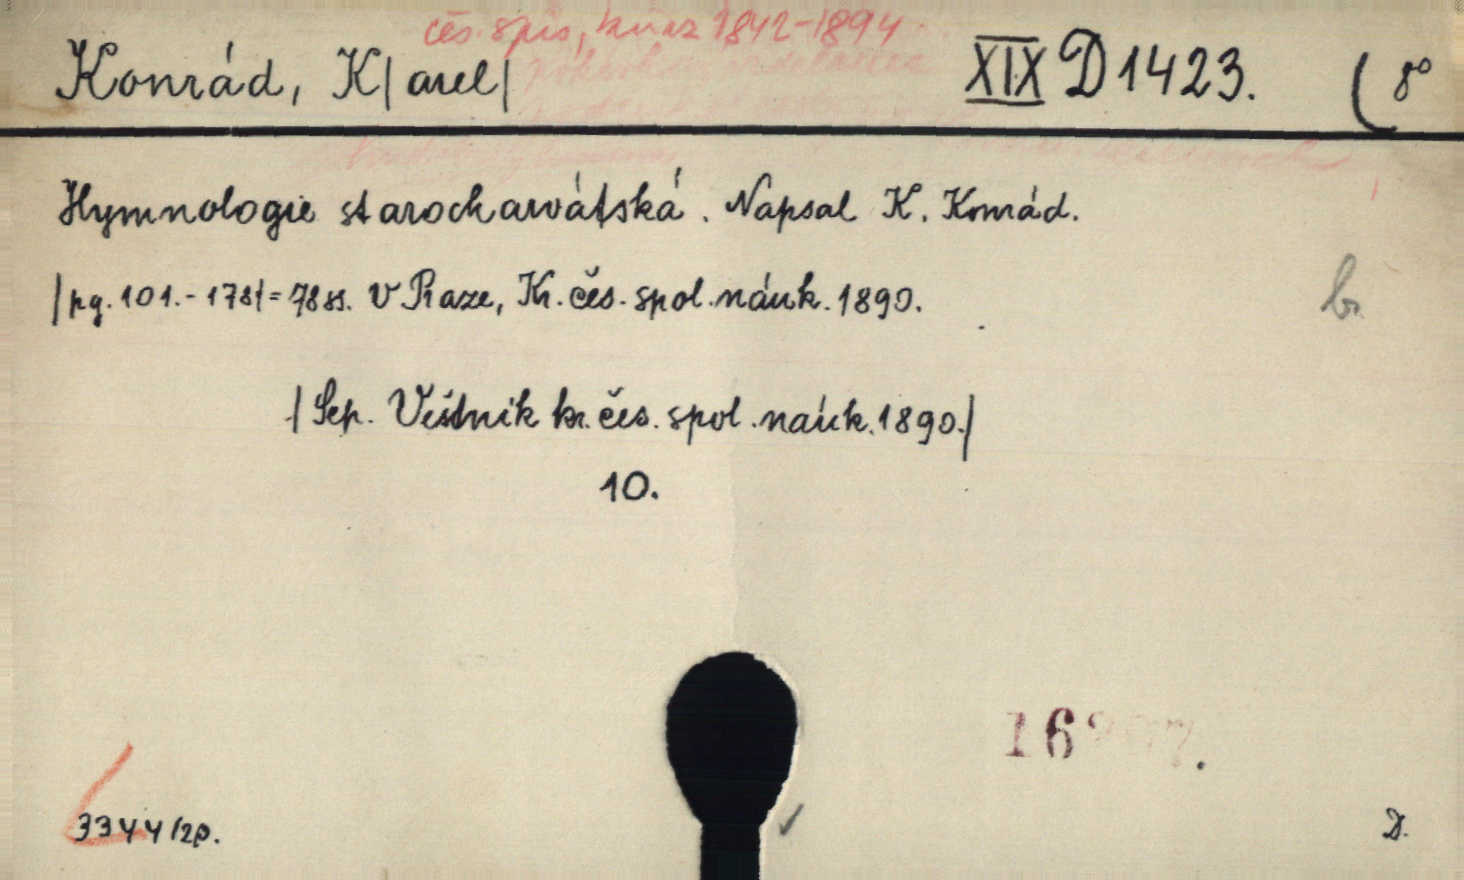 čes. spis, kněz 1842-1894
Konrád, K|arel| XIX D 1423. ( 8°
Hymnologie starocharvátská. Napsal K. Konrád.
|pg. 101.-178|=78 ss. V Praze, Kr. čes. spol. náuk. 1890.
b.
|Sep. Věstník kr. čes. spol. náuk. 1890.|
10.
3344/2p.
D.